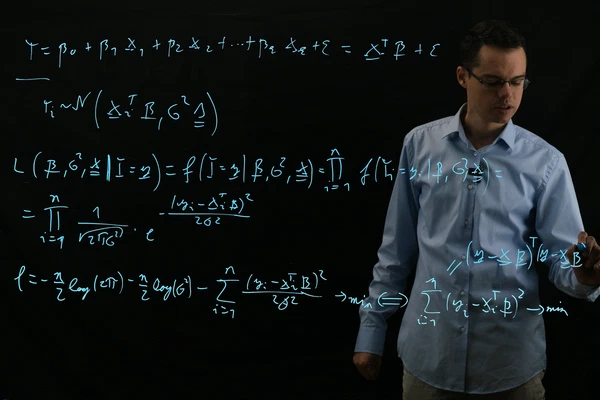 Y = β₀ + β₁ X₁ + β₂ X₂ + ... + βₖ Xₖ + ε = X^T β + ε
Yᵢ ~ N(Xᵢ^T β, σ² 1)
L(β, σ², X | Y = y) = f(Y = y | β, σ², X) = ∏_{i=1}^{n} f(Yᵢ = yᵢ | β, σ², X) =
= ∏_{i=1}^{n} 1/√(2πσ²) · e^{-(yᵢ - Xᵢ^T β)²/2σ²}
// (y - Xβ)^T (y - Xβ
l = -n/2 log(2π) - n/2 log(σ²) - ∑_{i=1}^{n} (yᵢ - Xᵢ^T β)²/2σ² → min ⟺ ∑_{i=1}^{n} (yᵢ - Xᵢ^T β)² → min